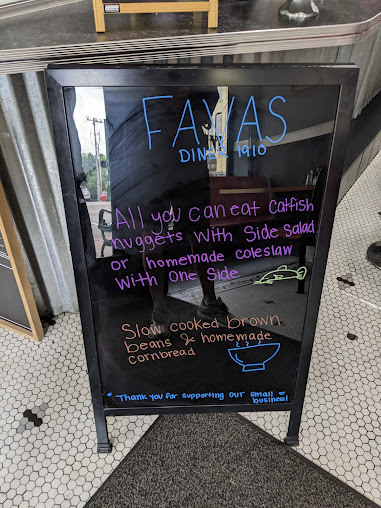 FAVAS
DINER 1910
All you can eat Catfish
nuggets with Side Salad
or homemade coleslaw
With One Side
Slow cooked brown
beans & homemade
cornbread
Thank you for supporting our small
business!